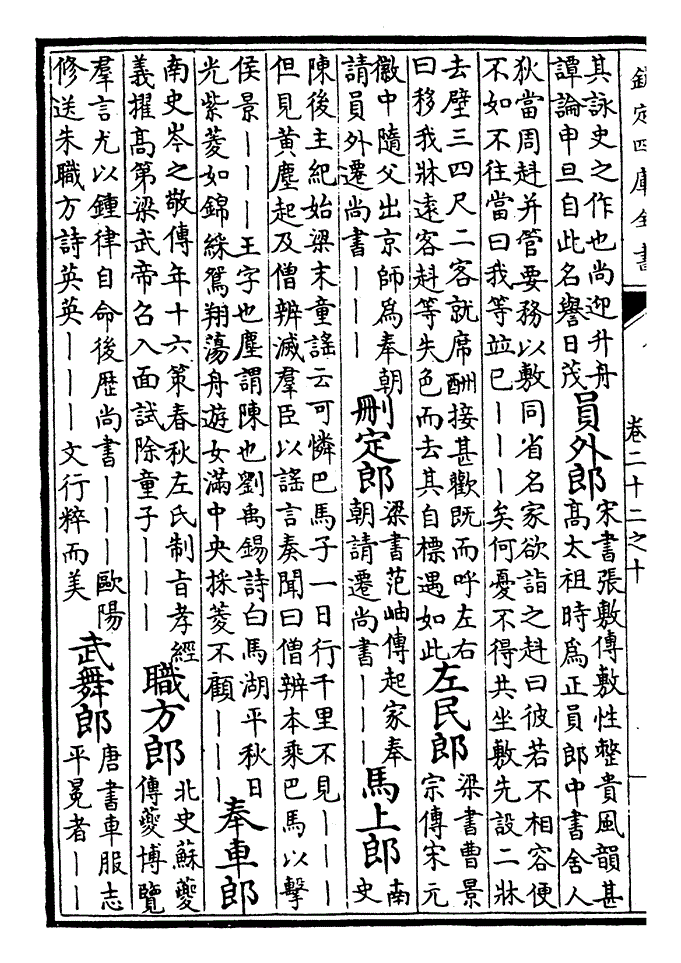 欽定四庫全書
卷二十二之十
其詠史之作也尚迎升舟
譚論申旦自此名譽日茂
員外郎
宋書張敷傳敷性整貴風韻甚
高太祖時為正員郎中書舍人
狄當周赳并管要務以敷同省名家欲詣之赳曰彼若不相容便
不如不往當曰我等竝已｜｜｜矣何憂不得共坐敷先設二牀
去壁三四尺二客就席酬接甚歡既而呼左右
曰移我牀遠客赳等失色而去其自標遇如此
左民郎
梁書曹景
宗傳宋元
徽中隨父出京師為奉朝
請員外遷尚書｜｜｜
刪定郎
梁書范岫傳起家奉
朝請遷尚書｜｜｜
馬上郎
南
史
陳後主紀始梁末童謠云可憐巴馬子一日行千里不見｜｜｜
但見黃塵起及僧辨滅羣臣以謠言奏聞曰僧辨本乘巴馬以擊
侯景｜｜｜王字也塵謂陳也劉禹錫詩白馬湖平秋日
光紫菱如錦綵鴛翔蕩舟遊女滿中央採菱不顧｜｜｜
奉車郎
南史岑之敬傳年十六策春秋左氏制旨孝經
義擢高第梁武帝召入面試除童子｜｜｜
職方郎
北史蘇夔
傳夔博覽
羣言尤以鍾律自命後歷尚書｜｜｜歐陽
修送朱職方詩英英｜｜｜文行粹而美
武舞郎
唐書車服志
平冕者｜｜